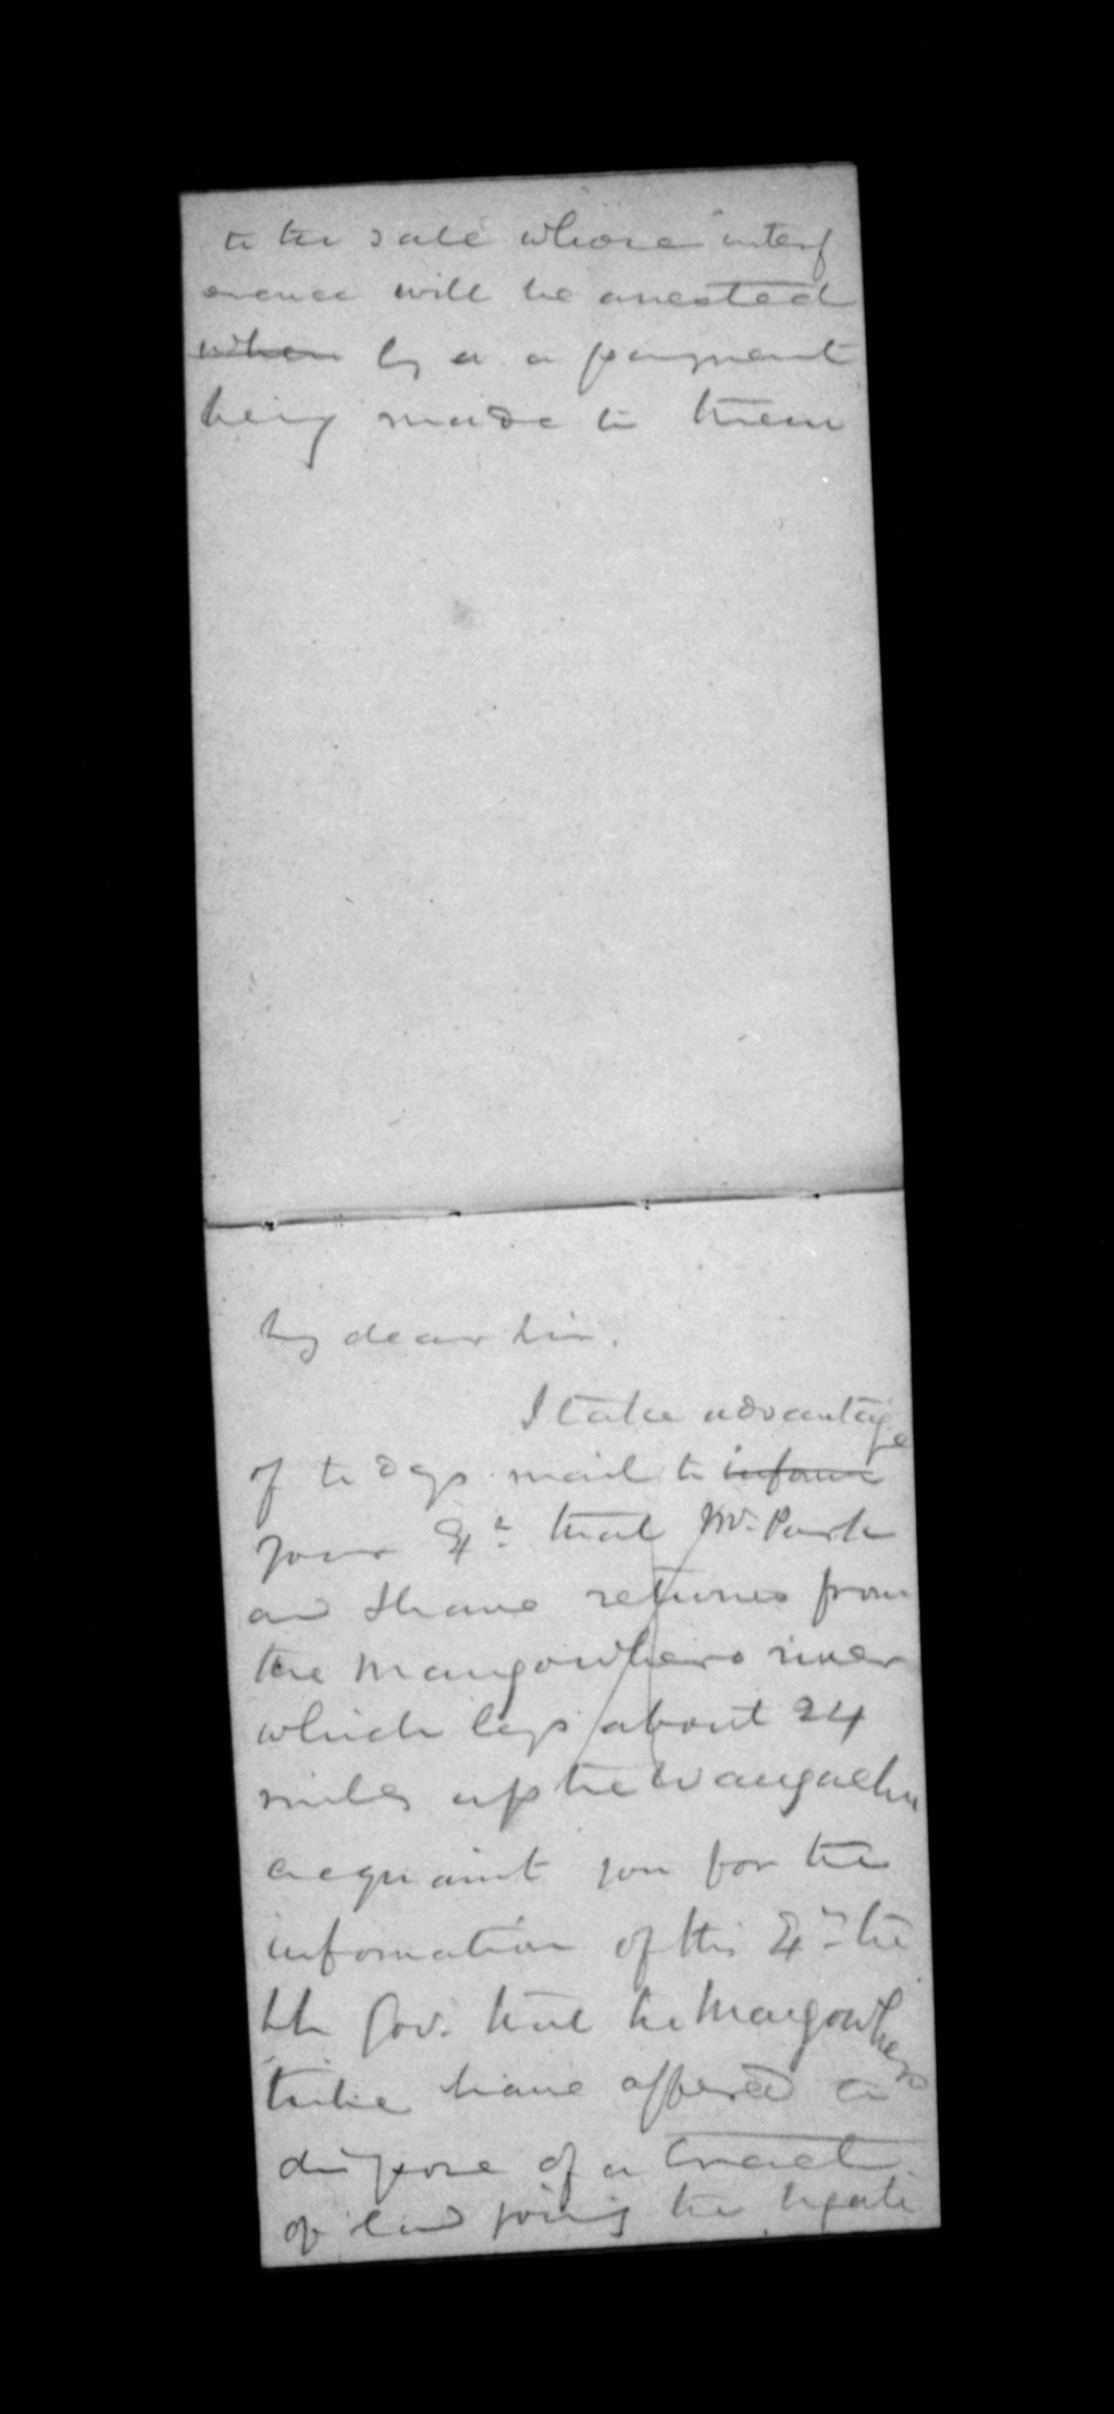 to the sale whose interf
erence will be arrested
when by a a payment
being made to them
My dear Sir.
I take advantage
of to days mail to inform
your that Mr. Park
and I have returned from
the Mangowhero river
which lays about 24
miles up the Wangaehu
acquaint you for the
information of His the
Lt Gov. that the Mangowhero
tribe have offered to
dispose of a tract
of land joing the